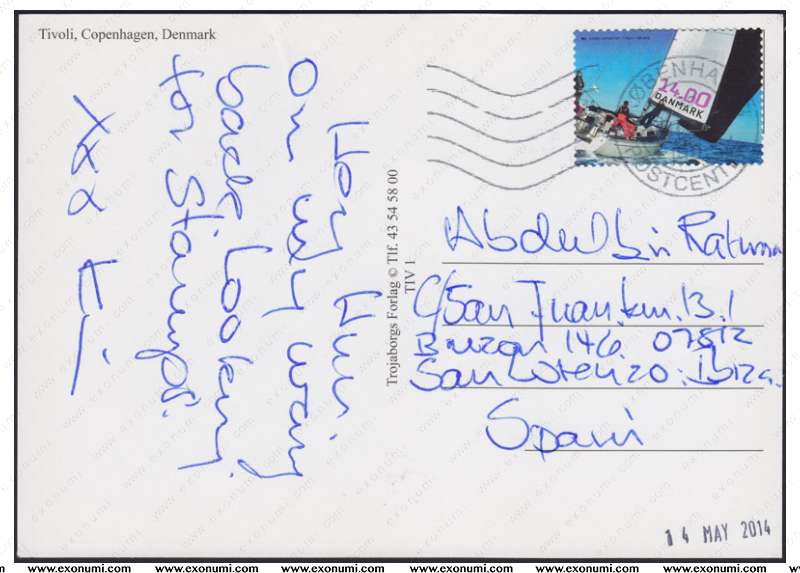 Tivoli, Copenhagen, Denmark
Hey Hun.
on my way
back looking
for Stamps.
xxx Kri
Trojaborgs Forlag © Tlf. 43 54 58 00
TIV 1
14.00
DANMARK
KØBENHAVN
POSTCENTER
Abdul bin
C/San Juan km. 13.1
Buzon 146. 07812
San Lorenzo. Ibiza.
Spain
14 MAY 2014
www.exonumi.com www.exonumi.com www.exonumi.com www.exonumi.com www.exonumi.com www.exonumi.com